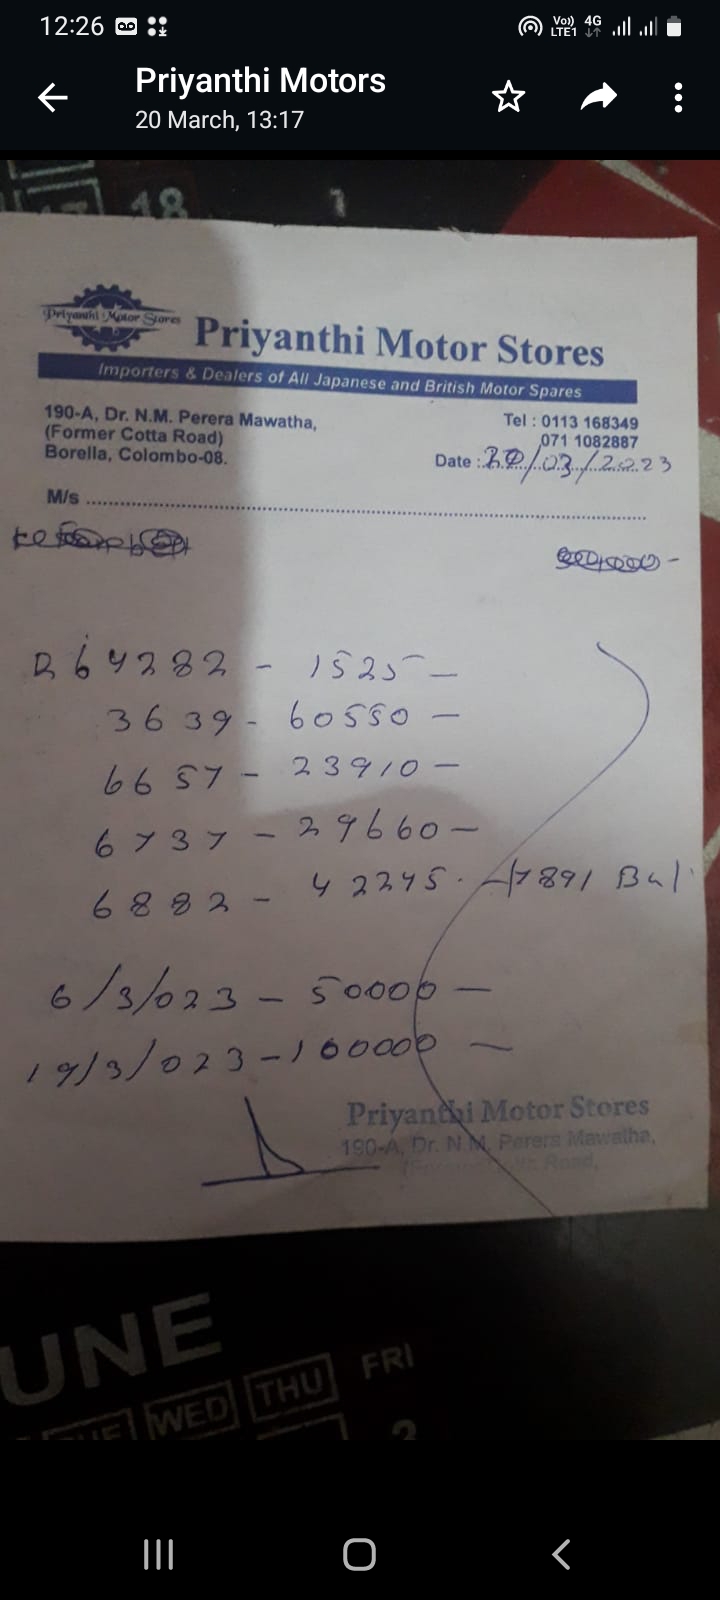 12:26 Vo)) LTE1 4G
Priyanthi Motors
20 March, 13:17
18 1
Priyanthi Motor Stores
Priyanthi Motor Stores
Importers & Dealers of All Japanese and British Motor Spares
190-A, Dr. N.M. Perera Mawatha,
(Former Cotta Road)
Borella, Colombo-08.
Tel : 0113 168349
071 1082887
Date : 20/03/2023
M/s
R64282 - 1525 -
3639 - 60550 -
6657 - 23910 -
6737 - 29660 -
6882 - 42245. - 7891 Bal
6/3/023 - 50000 -
19/3/023 - 100000 -
Priyanthi Motor Stores
190-A, Dr. N.M. Perera Mawatha,
Road,
UNE
TUE WED THU FRI
2